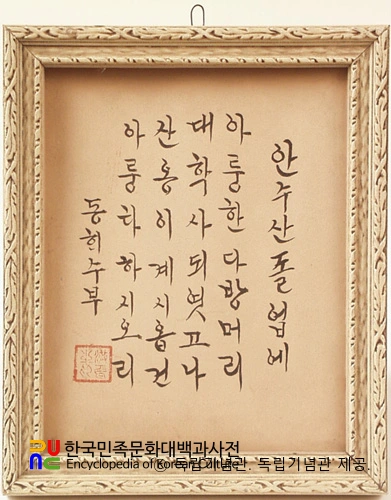 안수산 졸업에
아룽한 다방머리
대학사 되엿고나
산옹이 계시옵건
아룽타 하시오리
동해수부
한국민족문화대백과사전
Encyclopedia of Korean Culture
© 독립기념관. 독립기념관 제공.